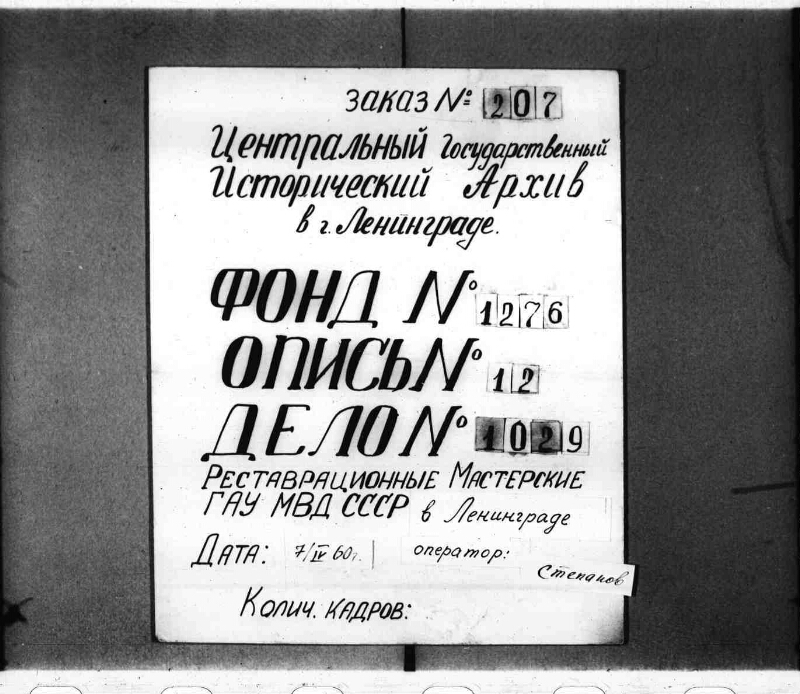 заказ № 207
Центральный Государственный
Исторический Архив
в г. Ленинграде.
ФОНД № 1276
ОПИСЬ № 12
ДЕЛО № 1029
Реставрационные Мастерские
ГАУ МВД СССР в Ленинграде
Дата: 7/IV 60г. оператор:
Степанов
Колич. кадров: